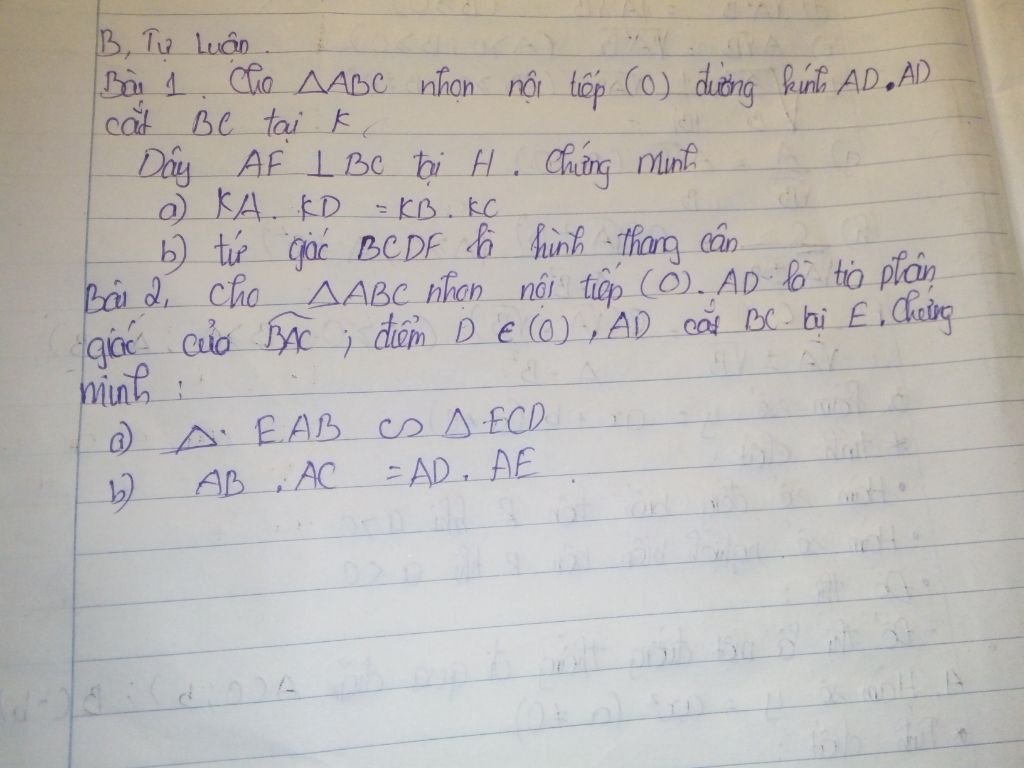 B, Tự Luận.
Bài 1. Cho △ABC nhọn nội tiếp (O) đường kính AD. AD
cắt BC tại K
Dây AF ⊥ BC tại H. Chứng minh
a) KA. KD = KB. KC
b) tứ giác BCDF là hình thang cân
Bài 2, Cho △ABC nhọn nội tiếp (O). AD là tia phân
giác của BAC; điểm D ∈ (O), AD cắt BC tại E. Chứng
minh:
a) △ EAB ∽ △ ECD
b) AB . AC = AD. AE.